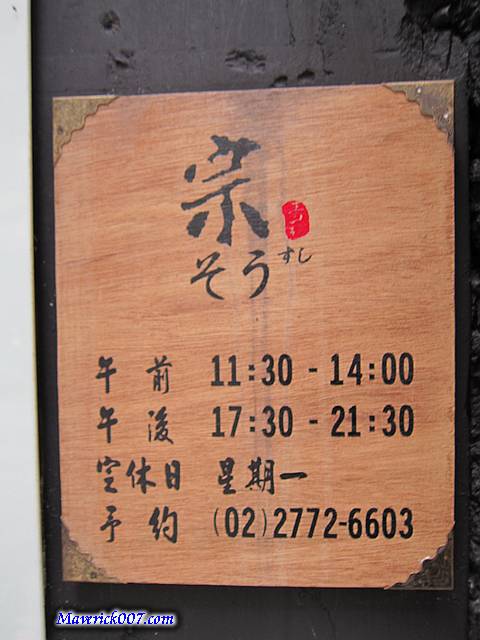 宗
そう すし
午前 11:30 - 14:00
午後 17:30 - 21:30
定休日 星期一
予約 (02)2772-6603
Maverick007.com